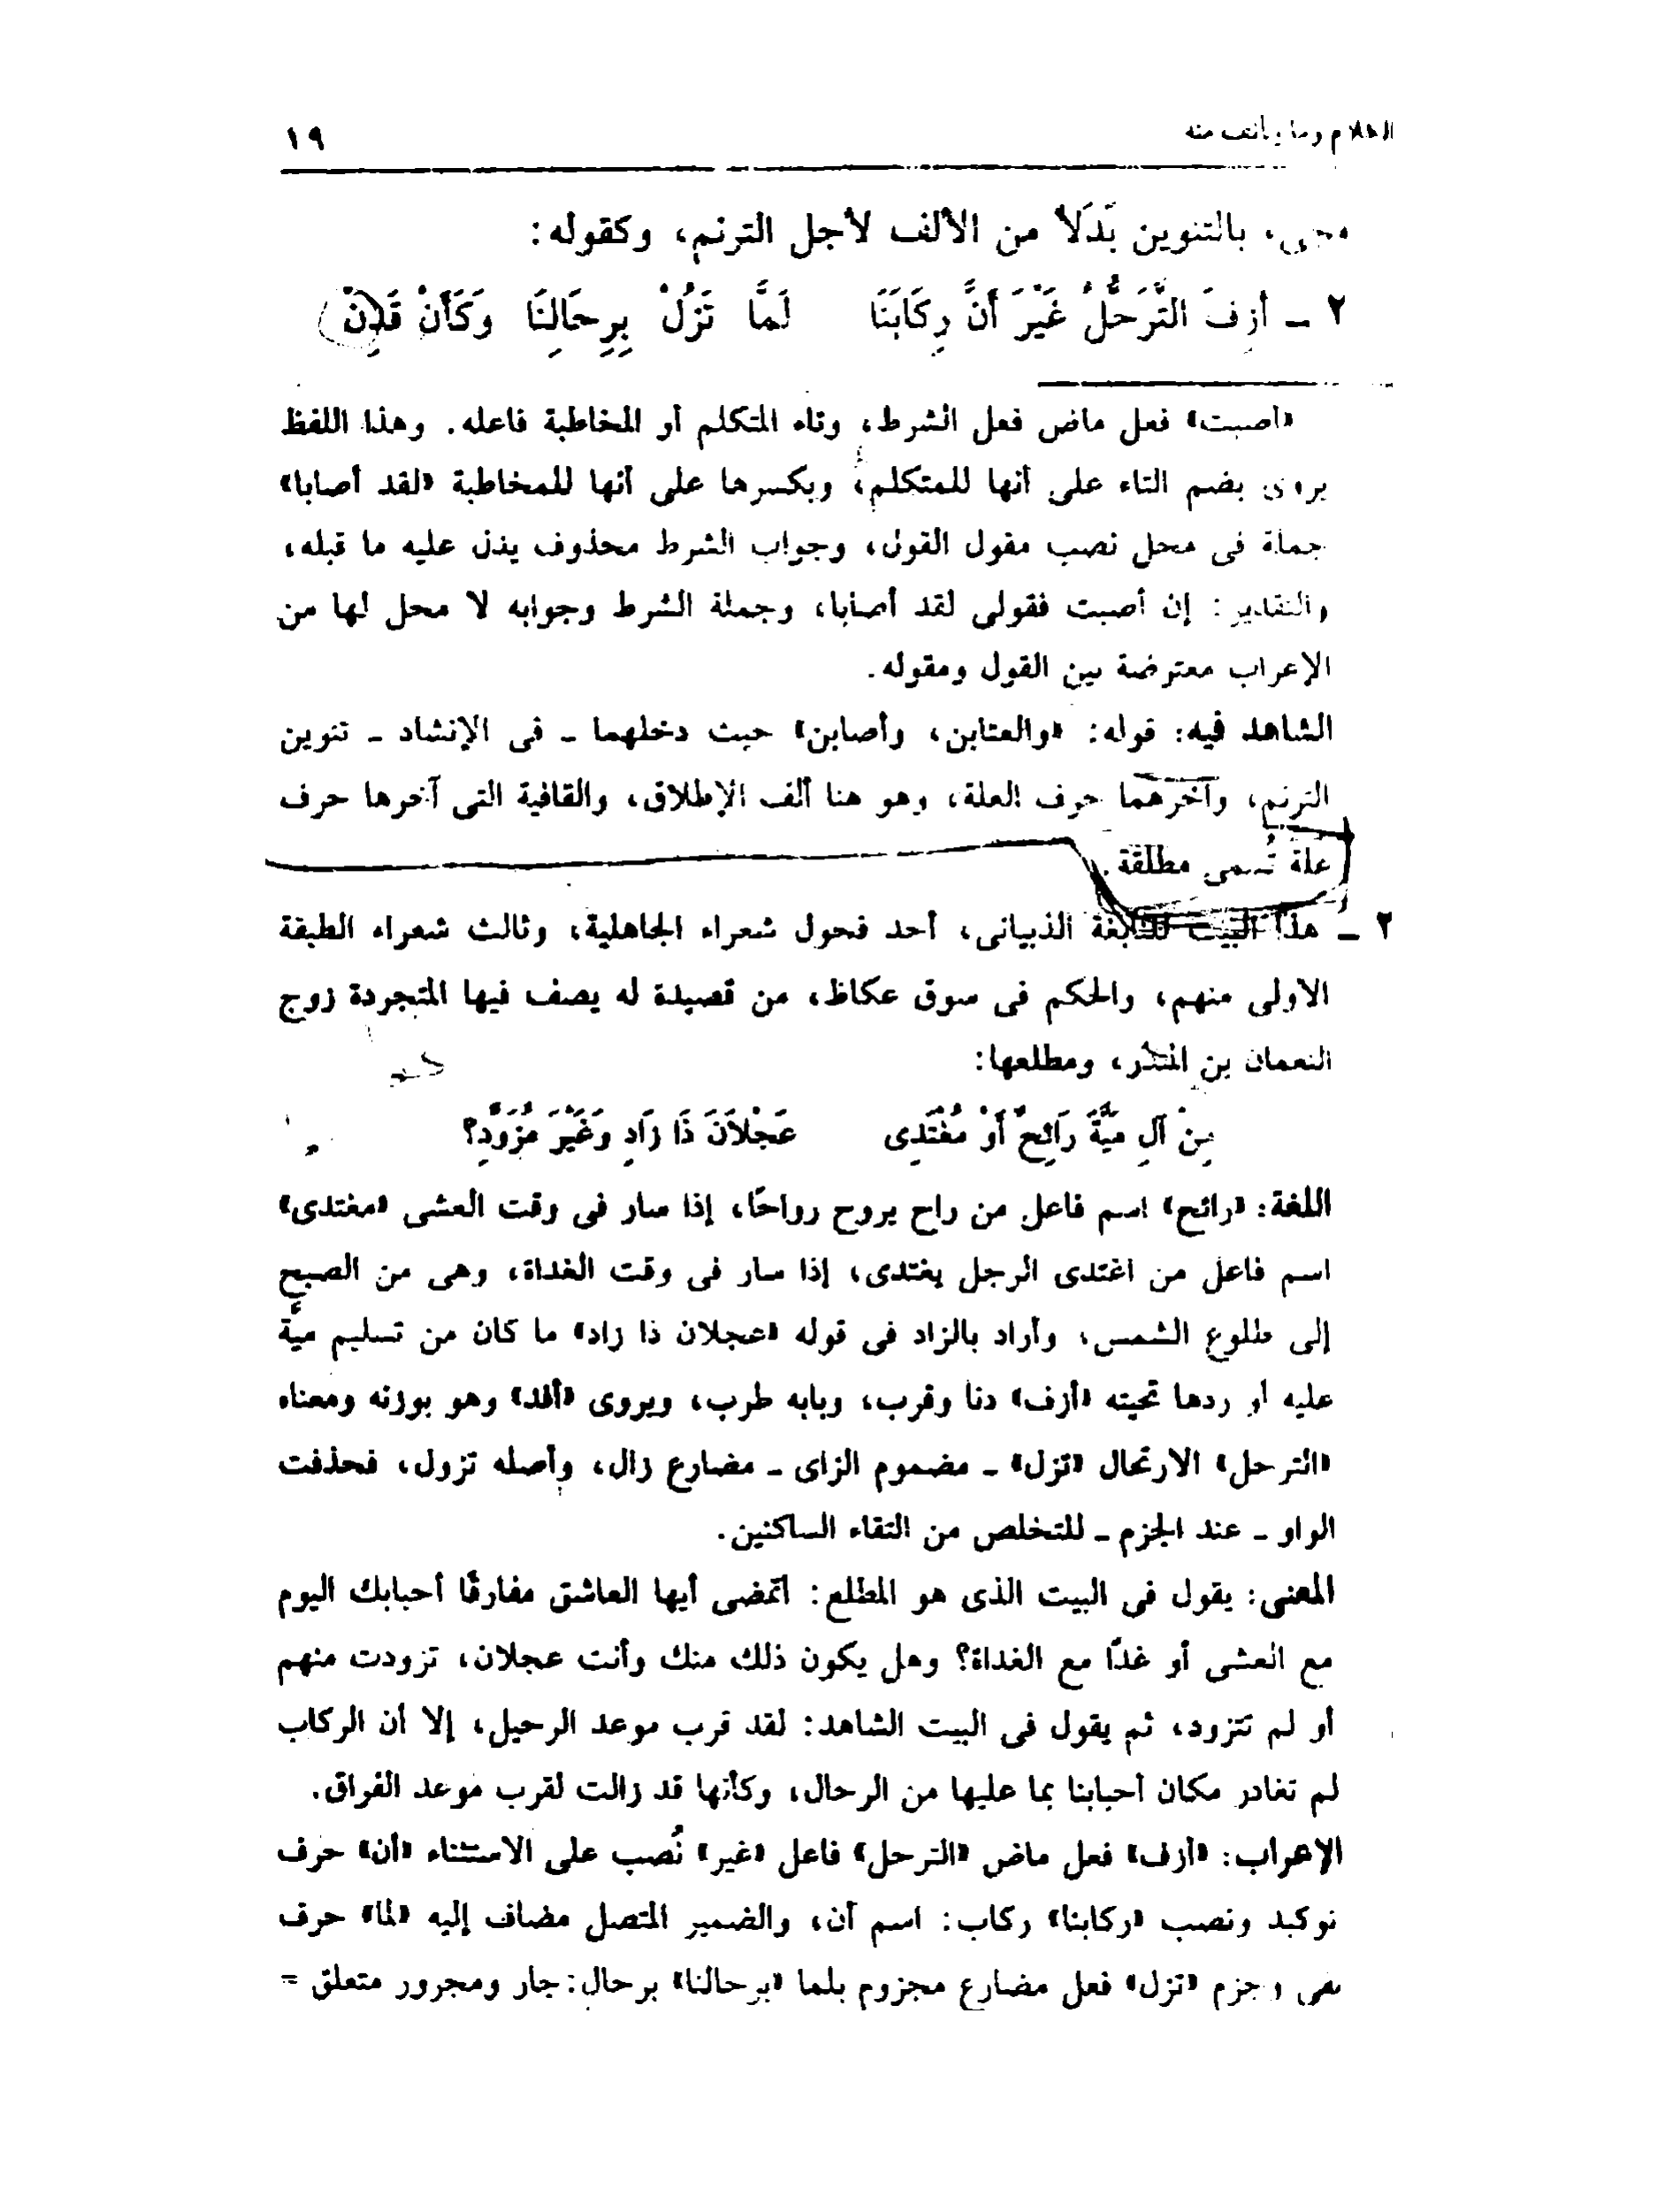 الكلام وما يتألف منه ١٩
فجىء بالتنوين بَدَلاً من الألف لأجل الترنم، وكقوله:
٢ ـ أزِفَ التَّرَحُّلُ غَيْرَ أَنَّ رِكَابَنَا لَمَّا تَزُلْ بِرِحَالِنَا وَكَأَنْ قَدِنْ
«أصبت» فعل ماض فعل الشرط، وتاء المتكلم أو المخاطبة فاعله. وهذا اللفظ
يروى بضم التاء على أنها للمتكلم، وبكسرها على أنها للمخاطبة «لقد أصابا»
جملة فى محل نصب مقول القول، وجواب الشرط محذوف يدل عليه ما قبله،
والتقدير: إن أصبت فقولى لقد أصابا، وجملة الشرط وجوابه لا محل لها من
الإعراب معترضة بين القول ومقوله.
الشاهد فيه: قوله: «والعتابن، وأصابن» حيث دخلهما ـ فى الإنشاد ـ تنوين
الترنم، وآخرهما حرف العلة، وهو هنا ألف الإطلاق، والقافية التى آخرها حرف
علة تُسمى مطلقة.
٢ ـ هذا البيت للنابغة الذبيانى، أحد فحول شعراء الجاهلية، وثالث شعراء الطبقة
الأولى منهم، والحكم فى سوق عكاظ، من قصيدة له يصف فيها المتجردة زوج
النعمان بن المنذر، ومطلعها:
مِنْ آلِ مَيَّةَ رَائِحٌ أَوْ مُغْتَدِى عَجْلاَنَ ذَا زَادٍ وَغَيْرَ مُزَوَّدِ؟
اللغة: «رائح» اسم فاعل من راح يروح رواحًا، إذا سار فى وقت العشى «مغتدى»
اسم فاعل من اغتدى الرجل يغتدى، إذا سار فى وقت الغداة، وهى من الصبح
إلى طلوع الشمس، وأراد بالزاد فى قوله «عجلان ذا زاد» ما كان من تسليم ميَّة
عليه أو ردها تحيته «أزف» دنا وقرب، وبابه طرب، ويروى «أفد» وهو بوزنه ومعناه
«الترحل» الارتحال «تزل» ـ مضموم الزاى ـ مضارع زال، وأصله تزول، فحذفت
الواو ـ عند الجزم ـ للتخلص من التقاء الساكنين.
المعنى: يقول فى البيت الذى هو المطلع: أتمضى أيها العاشق مفارقًا أحبابك اليوم
مع العشى أو غدًا مع الغداة؟ وهل يكون ذلك منك وأنت عجلان، تزودت منهم
أو لم تتزود، ثم يقول فى البيت الشاهد: لقد قرب موعد الرحيل، إلا أن الركاب
لم تغادر مكان أحبابنا بما عليها من الرحال، وكأنها قد زالت لقرب موعد الفراق.
الإعراب: «أزف» فعل ماض «الترحل» فاعل «غير» نُصب على الاستثناء «أن» حرف
توكيد ونصب «ركابنا» ركاب: اسم أن، والضمير المتصل مضاف إليه «لما» حرف
نفى وجزم «تزل» فعل مضارع مجزوم بلما «برحالنا» برحال: جار ومجرور متعلق =